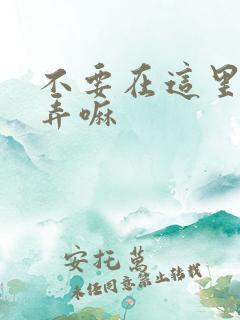 不要在這里
弄嘛
安托萬
未經同意禁止轉載